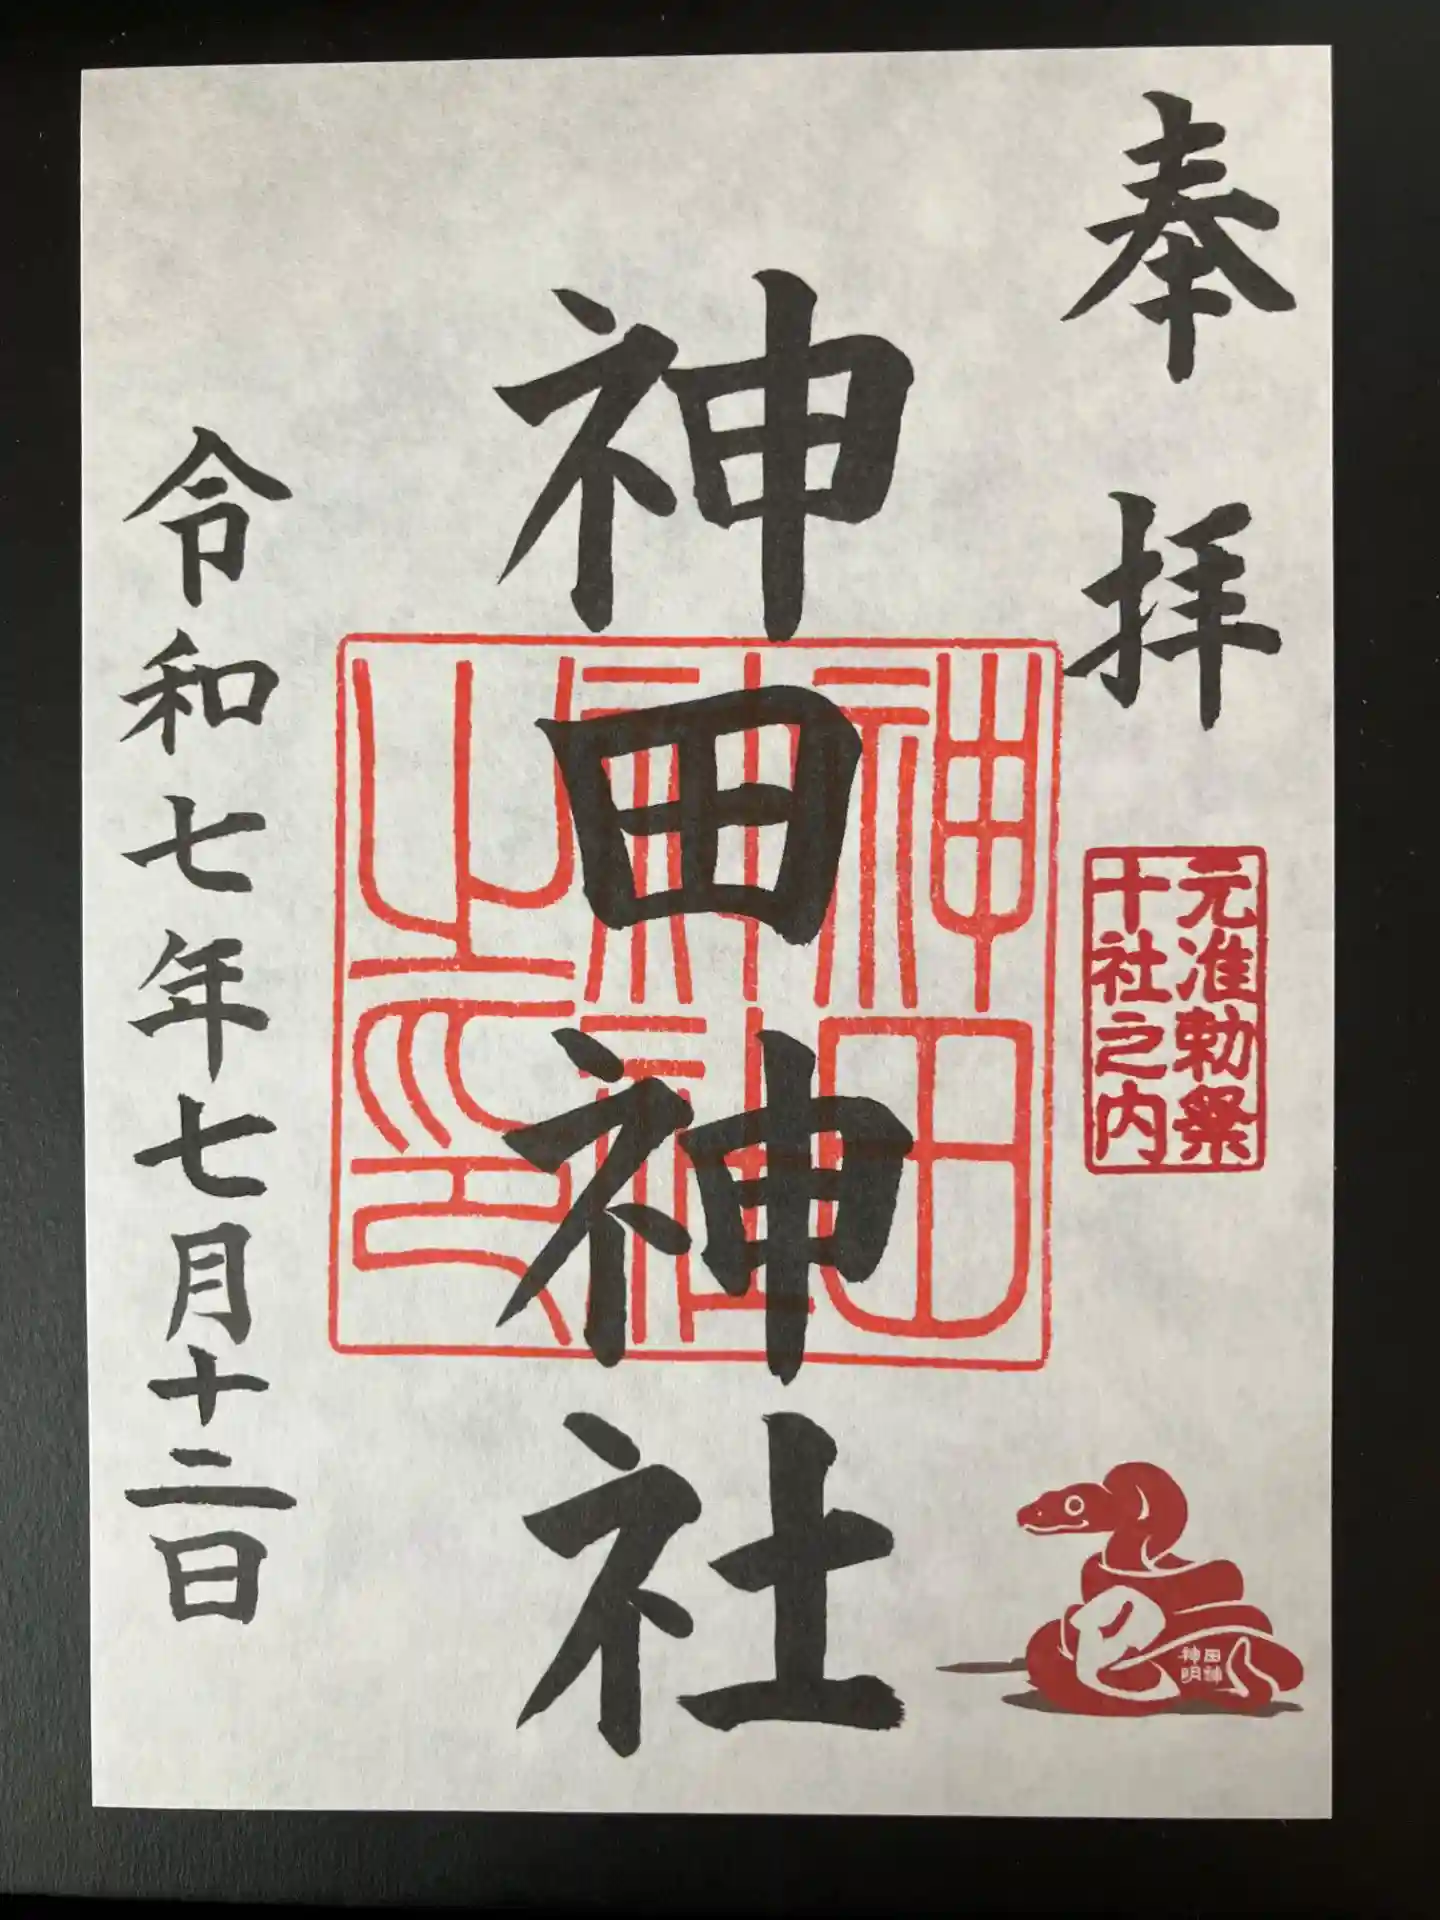 奉拝
元准勅祭
十社之内
巳
神田神社
神田
神社
之印
令和七年七月十二日